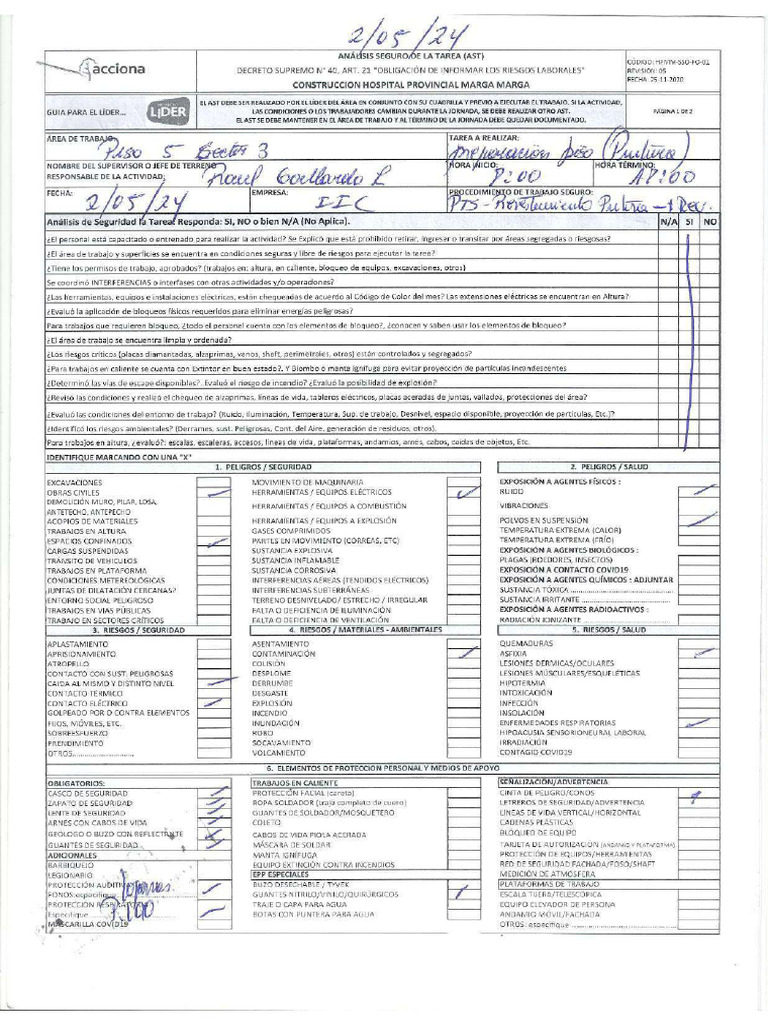 2/05/24
acciona
ANÁLISIS SEGURO DE LA TAREA (AST)
DECRETO SUPREMO N° 40, ART. 21 "OBLIGACIÓN DE INFORMAR LOS RIESGOS LABORALES"
CONSTRUCCION HOSPITAL PROVINCIAL MARGA MARGA
CÓDIGO: HPMM-SSO-FO-01
REVISIÓN: 05
FECHA: 25-11-2020
GUIA PARA EL LÍDER...
LÍDER
EL AST DEBE SER REALIZADO POR EL LÍDER DEL ÁREA EN CONJUNTO CON SU CUADRILLA Y PREVIO A EJECUTAR EL TRABAJO. SI LA ACTIVIDAD,
LAS CONDICIONES O LOS TRABAJADORES CAMBIAN DURANTE LA JORNADA, SE DEBE REALIZAR OTRO AST.
EL AST SE DEBE MANTENER EN EL ÁREA DE TRABAJO Y AL TÉRMINO DE LA JORNADA DEBE QUEDAR DOCUMENTADO.
PÁGINA 1 DE 2
ÁREA DE TRABAJO: Piso 5 Sector 3
TAREA A REALIZAR: Preparacion piso (Pintura)
NOMBRE DEL SUPERVISOR O JEFE DE TERRENO
RESPONSABLE DE LA ACTIVIDAD: Raul Gallardo L
HORA INICIO: 8:00
HORA TÉRMINO: 18:00
FECHA: 2/05/24
EMPRESA: IIC
PROCEDIMIENTO DE TRABAJO SEGURO:
PTS - Pintura
Análisis de Seguridad la Tarea: Responda: SI, NO o bien N/A (No Aplica).
N/A SI NO
¿El personal está capacitado o entrenado para realizar la actividad? Se Explicó que está prohibido retirar, ingresar o transitar por áreas segregadas o riesgosas?
¿El área de trabajo y superficies se encuentra en condiciones seguras y libre de riesgos para ejecutar la tarea?
¿Tiene los permisos de trabajo, aprobados? (trabajos en: altura, en caliente, bloqueo de equipos, excavaciones, otros)
Se coordinó INTERFERENCIAS o interfases con otras actividades y/o operaciones?
¿Las herramientas, equipos e instalaciones eléctricas, están chequeadas de acuerdo al Código de Color del mes? Las extensiones eléctricas se encuentran en Altura?
¿Evaluó la aplicación de bloqueos físicos requeridos para eliminar energías peligrosas?
Para trabajos que requieren bloqueo, ¿todo el personal cuenta con los elementos de bloqueo?, ¿conocen y saben usar los elementos de bloqueo?
¿El área de trabajo se encuentra limpia y ordenada?
¿Los riesgos críticos (placas diamantadas, alzaprimas, vanos, shaft, perimetrales, otros) están controlados y segregados?
¿Para trabajos en caliente se cuenta con Extintor en buen estado?. Y Biombo o manta ignifuga para evitar proyección de partículas incandescentes
¿Determinó las vías de escape disponibles?. Evaluó el riesgo de incendio? ¿Evaluó la posibilidad de explosión?
¿Reviso las condiciones y realizo el chequeo de alzaprimas, líneas de vida, tableros eléctricos, placas aceradas de juntas, vallados, protecciones del área?
¿Evaluó las condiciones del entorno de trabajo? (Ruido, Iluminación, Temperatura, Sup. de trabajo, Desnivel, espacio disponible, proyección de partículas, Etc.)?
¿Identificó los riesgos ambientales? (Derrames, sust. Peligrosas, Cont. del Aire, generación de residuos, otros).
Para trabajos en altura, ¿evaluó?: escalas, escaleras, accesos, líneas de vida, plataformas, andamios, arnés, cabos, caídas de objetos, Etc.
IDENTIFIQUE MARCANDO CON UNA "X"
1. PELIGROS / SEGURIDAD
EXCAVACIONES
OBRAS CIVILES
DEMOLICIÓN MURO, PILAR, LOSA,
ANTETECHO, ANTEPECHO
ACOPIOS DE MATERIALES
TRABAJOS EN ALTURA
ESPACIOS CONFINADOS
CARGAS SUSPENDIDAS
TRANSITO DE VEHICULOS
TRABAJOS EN PLATAFORMA
CONDICIONES METEREOLÓGICAS
JUNTAS DE DILATACIÓN CERCANAS?
ENTORNO SOCIAL PELIGROSO
TRABAJOS EN VÍAS PÚBLICAS
TRABAJO EN SECTORES CRÍTICOS
MOVIMIENTO DE MAQUINARIA
HERRAMIENTAS / EQUIPOS ELÉCTRICOS
HERRAMIENTAS / EQUIPOS A COMBUSTIÓN
HERRAMIENTAS / EQUIPOS A EXPLOSIÓN
GASES COMPRIMIDOS
PARTES EN MOVIMIENTO (CORREAS, ETC)
SUSTANCIA EXPLOSIVA
SUSTANCIA INFLAMABLE
SUSTANCIA CORROSIVA
INTERFERENCIAS AÉREAS (TENDIDOS ELÉCTRICOS)
INTERFERENCIAS SUBTERRÁNEAS
TERRENO DESNIVELADO / ESTRECHO / IRREGULAR
FALTA O DEFICIENCIA DE ILUMINACIÓN
FALTA O DEFICIENCIA DE VENTILACIÓN
2. PELIGROS / SALUD
EXPOSICIÓN A AGENTES FÍSICOS :
RUIDO
VIBRACIONES
POLVOS EN SUSPENSIÓN
TEMPERATURA EXTREMA (CALOR)
TEMPERATURA EXTREMA (FRÍO)
EXPOSICIÓN A AGENTES BIOLÓGICOS :
PLAGAS (ROEDORES, INSECTOS)
EXPOSICIÓN A CONTACTO COVID19
EXPOSICIÓN A AGENTES QUÍMICOS : ADJUNTAR
SUSTANCIA TÓXICA ................
SUSTANCIA IRRITANTE ................
EXPOSICIÓN A AGENTES RADIOACTIVOS :
RADIACIÓN IONIZANTE ................
3. RIESGOS / SEGURIDAD
APLASTAMIENTO
APRISIONAMIENTO
ATROPELLO
CONTACTO CON SUST. PELIGROSAS
CAIDA AL MISMO Y DISTINTO NIVEL
CONTACTO TERMICO
CONTACTO ELÉCTRICO
GOLPEADO POR O CONTRA ELEMENTOS
FIJOS, MÓVILES, ETC.
SOBREESFUERZO
PRENDIMIENTO
OTROS................
4. RIESGOS / MATERIALES - AMBIENTALES
ASENTAMIENTO
CONTAMINACIÓN
COLISIÓN
DESPLOME
DERRUMBE
DESGASTE
EXPLOSIÓN
INCENDIO
INUNDACIÓN
ROBO
SOCAVAMIENTO
VOLCAMIENTO
5. RIESGOS / SALUD
QUEMADURAS
ASFIXIA
LESIONES DÉRMICAS/OCULARES
LESIONES MÚSCULARES/ESQUELÉTICAS
HIPOTERMIA
INTOXICACIÓN
INFECCIÓN
INSOLACIÓN
ENFERMEDADES RESPIRATORIAS
HIPOACUSIA SENSORIONEURAL LABORAL
IRRADIACIÓN
CONTAGIO COVID19
6. ELEMENTOS DE PROTECCION PERSONAL Y MEDIOS DE APOYO
OBLIGATORIOS:
CASCO DE SEGURIDAD
ZAPATO DE SEGURIDAD
LENTE DE SEGURIDAD
ARNES CON CABOS DE VIDA
GEOLOGO O BUZO CON REFLECTANTE
GUANTES DE SEGURIDAD
ADICIONALES
BARBIQUEJO
LEGIONARIO
PROTECCIÓN AUDITIVA
FONOS:especifique
PROTECCIÓN RESPIRATORIA
Especifique P100
MASCARILLA COVID19
TRABAJOS EN CALIENTE
PROTECCIÓN FACIAL (careta)
ROPA SOLDADOR (traje completo de cuero)
GUANTES DE SOLDADOR/MOSQUETERO
COLETO
CABOS DE VIDA PIOLA ACERADA
MÁSCARA DE SOLDAR
MANTA IGNÍFUGA
EQUIPO EXTINCIÓN CONTRA INCENDIOS
EPP ESPECIALES
BUZO DESECHABLE / TYVEK
GUANTES NITRILO/VINILO/QUIRÚRGICOS
TRAJE O CAPA PARA AGUA
BOTAS CON PUNTERA PARA AGUA
SEÑALIZACIÓN/ADVERTENCIA
CINTA DE PELIGRO/CONOS
LETREROS DE SEGURIDAD/ADVERTENCIA
LÍNEAS DE VIDA VERTICAL/HORIZONTAL
CADENAS PLÁSTICAS
BLOQUEO DE EQUIPO
TARJETA DE AUTORIZACIÓN (ANDAMIO Y PLATAFORMA)
PROTECCIÓN DE EQUIPOS/HERRAMIENTAS
RED DE SEGURIDAD FACHADA/FOSO/SHAFT
MEDICIÓN DE ATMOSFERA
PLATAFORMAS DE TRABAJO
ESCALA TIJERA/TELESCÓPICA
EQUIPO ELEVADOR DE PERSONA
ANDAMIO MÓVIL/FACHADA
OTROS: especifique ................